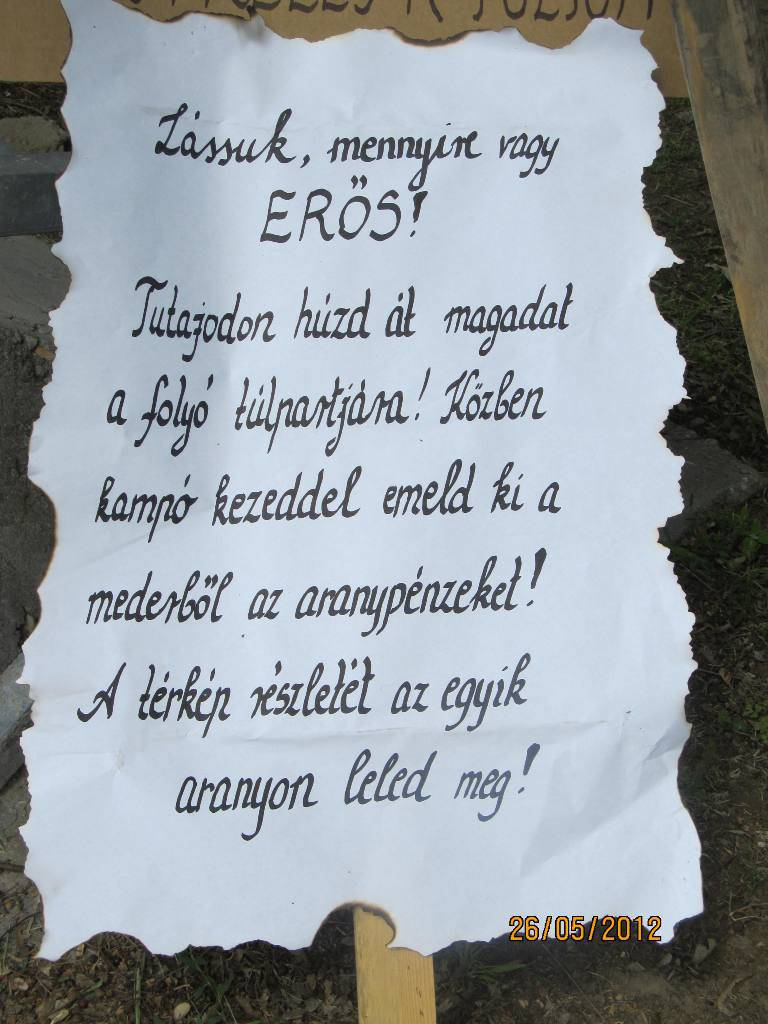 Lássuk, mennyire vagy
ERŐS!
Tutajodon húzd át magadat
a folyó túlpartjára! Közben
kampó kezeddel emeld ki a
mederből az aranypénzeket!
A térkép részletét az egyik
aranyon leled meg!
26/05/2012